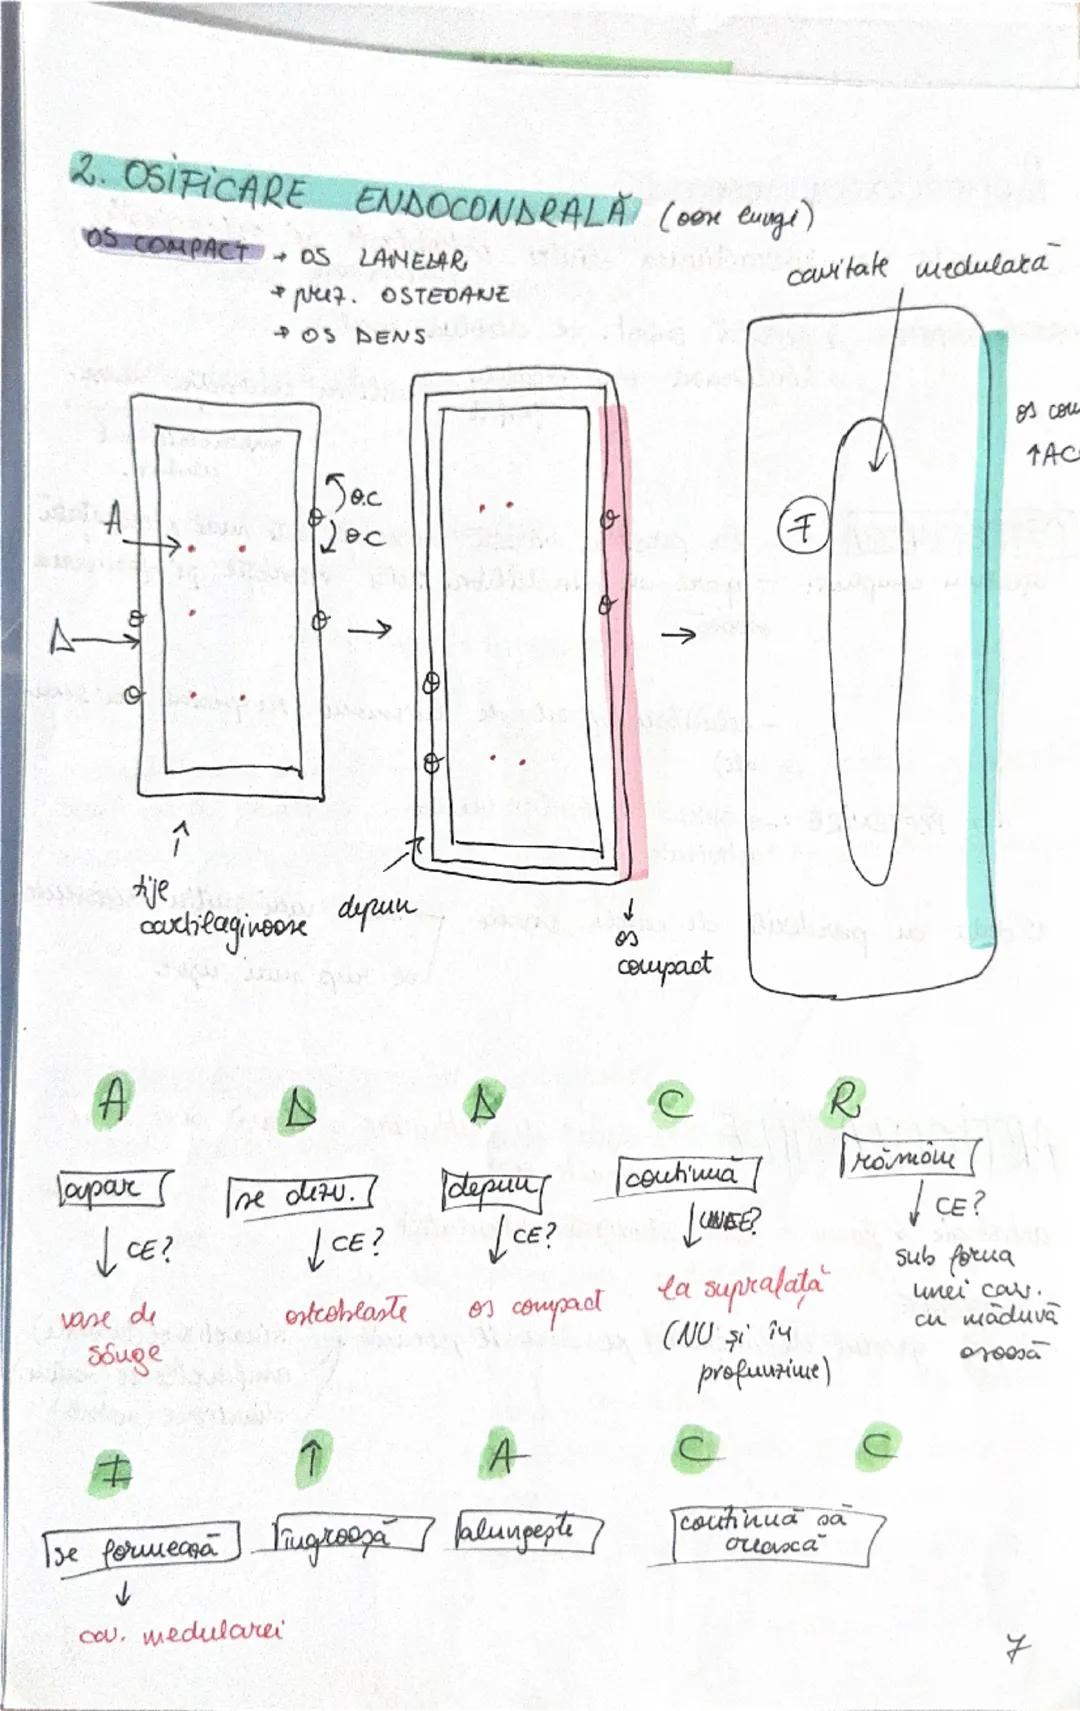 2. OSIFICARE ENDOCONDRALĂ (oase lungi)
OS COMPACT → OS LAMELAR
→ prez. OSTEOANE
→ OS DENS
cavitate medulară
os com
↑AC
A
o.c
o.c
F
D
→
→
tije
cartilaginoase
depun
os
compact
A D D C R
apar se dezv. depun continuă rămâne
CE? CE? CE? UNDE? CE?
vase de
sânge
osteoblaste
os compact
la suprafață
(NU și în
profunzime)
sub forma
unei cav.
cu măduvă
osoasă
F ↑ A C C
se formează îngroașă alungește continuă să
crească
cav. medularei
7